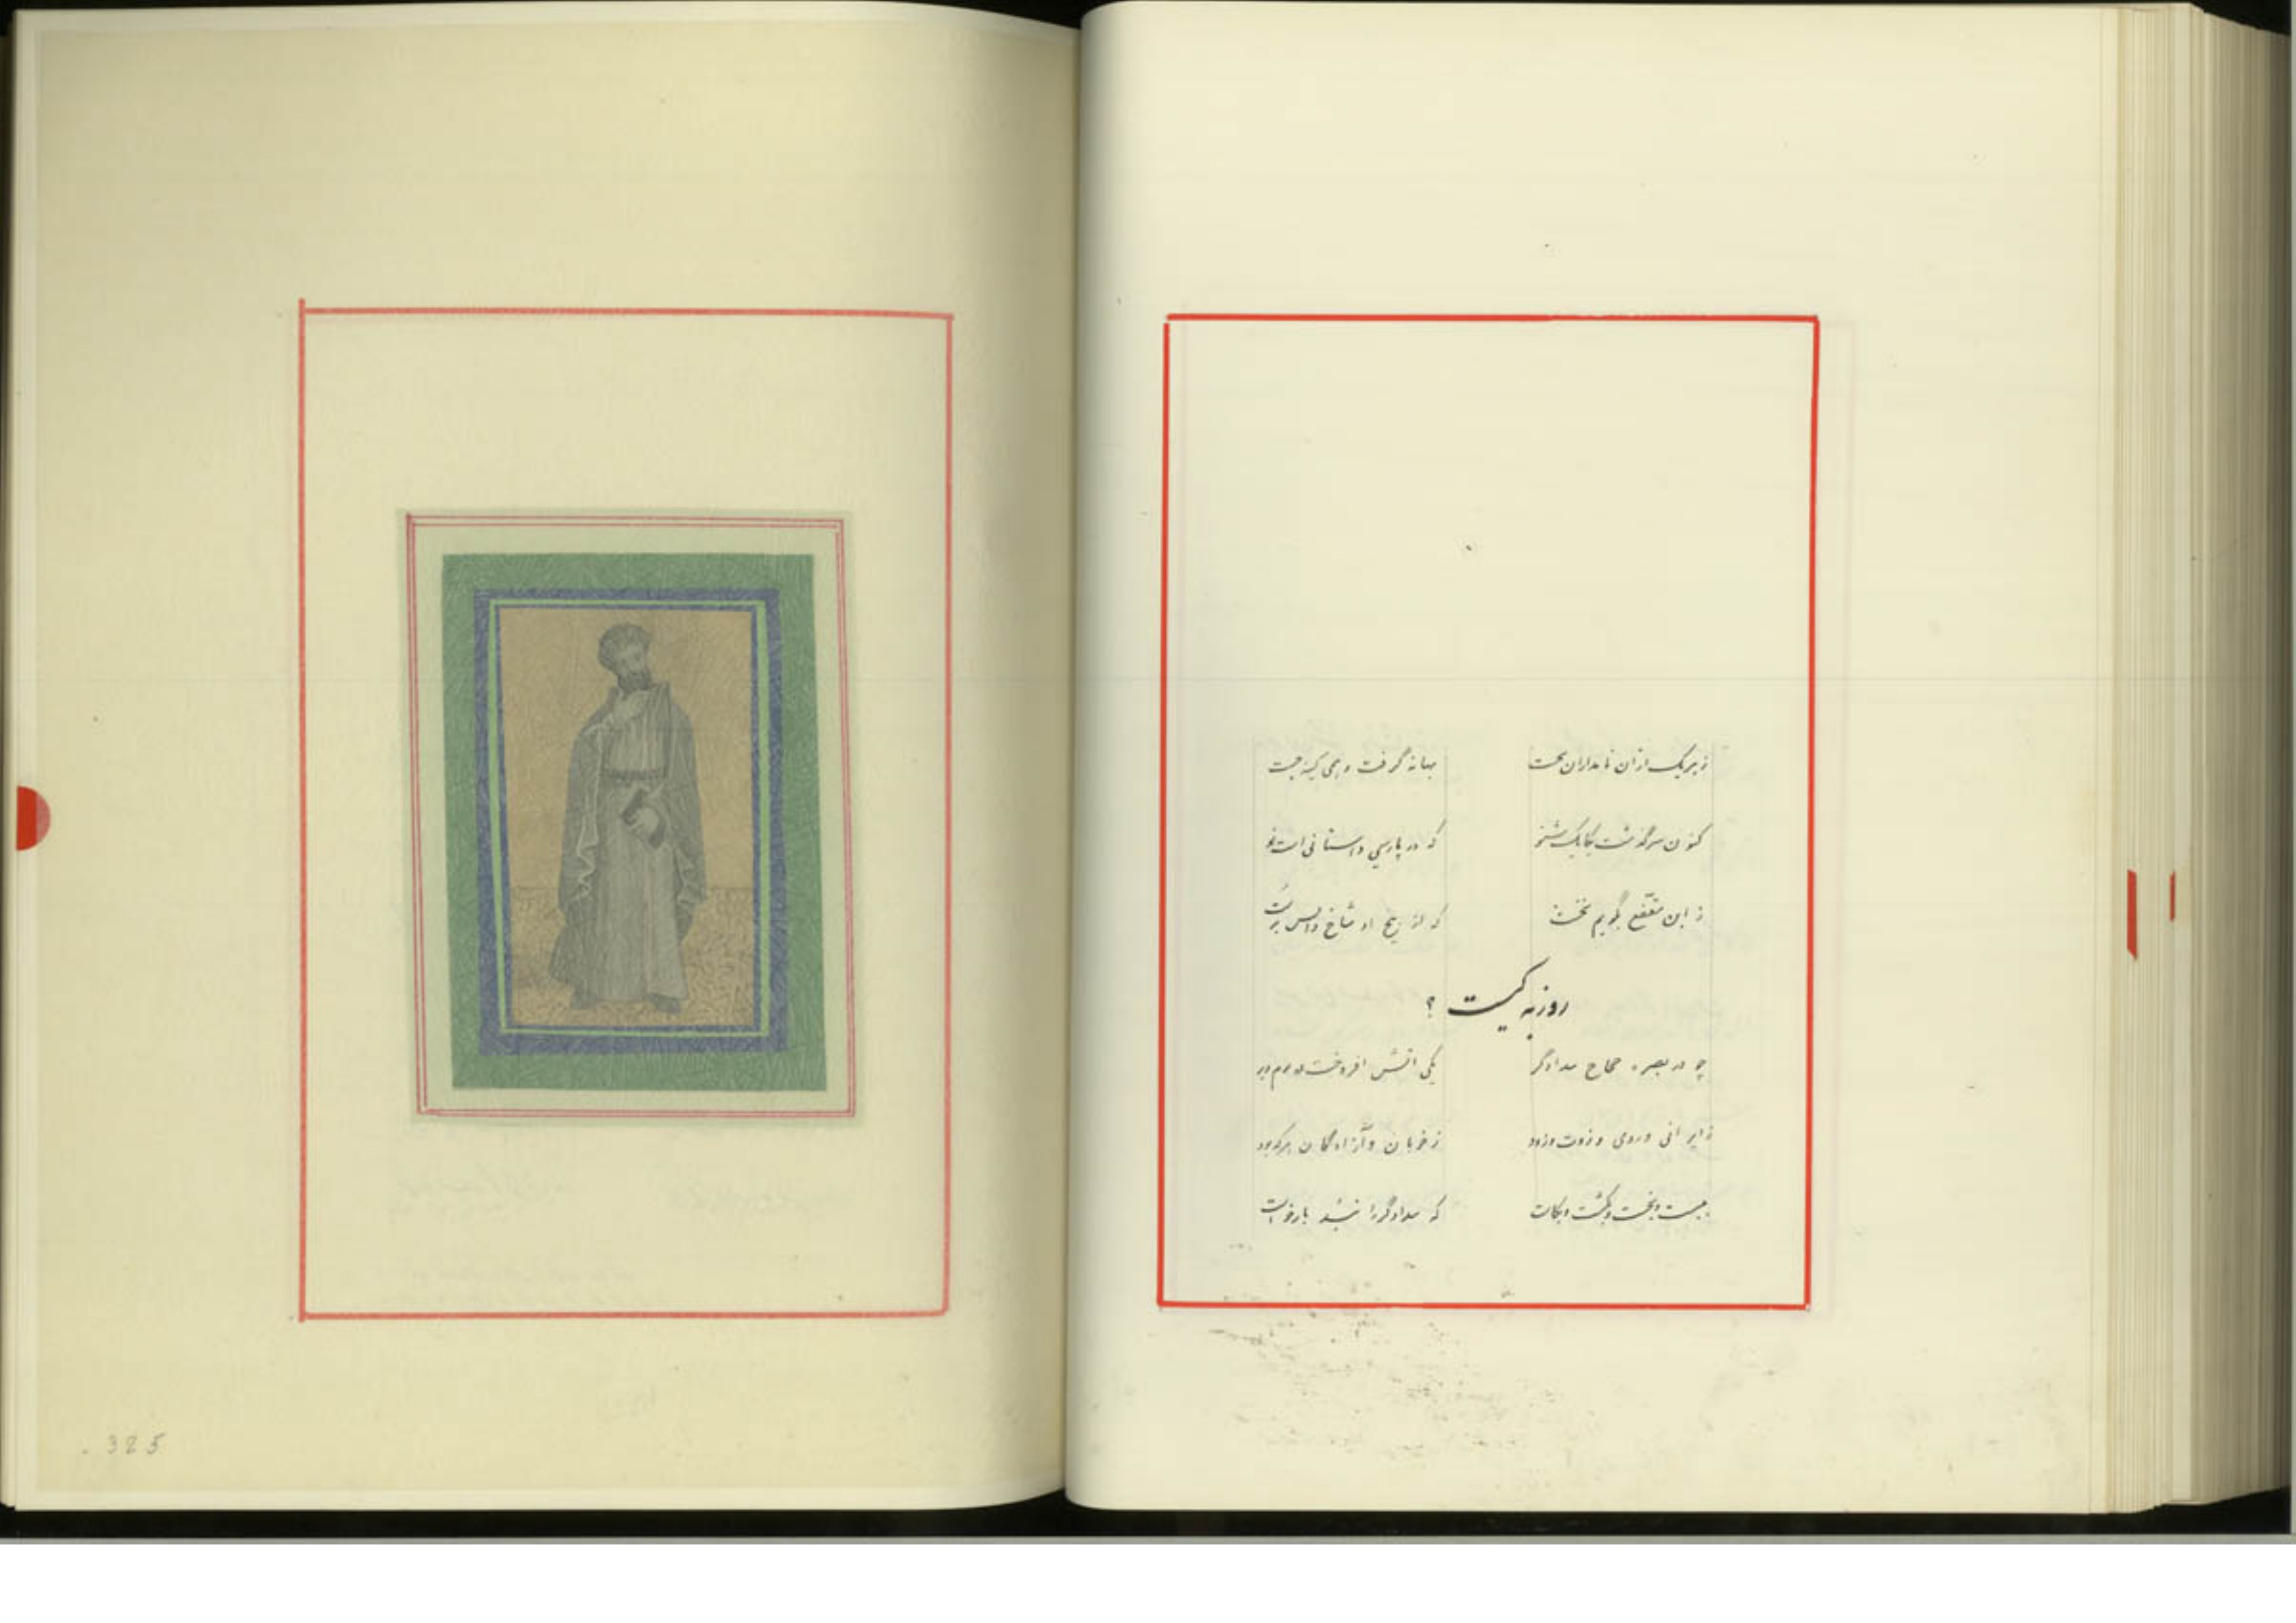 ز هر یک از آن نامداران نخست بهانه گرفت و همی کینه جست
کنون سرگذشت یکایک شنو که در پارسی داستانی است نو
ز ابن مقفع بگویم نخست که از بیخ او شاخ دانش برست
روزبه کیست ؟
چو در بصره حجاج بیدادگر یکی آتش افروخت در بوم و بر
ز ایرانی و رومی و ز خوبان و آزادگان هر که بود
ببست و بخست و بکشت و بکاست که بیدادگر را نشد بازخواست
325